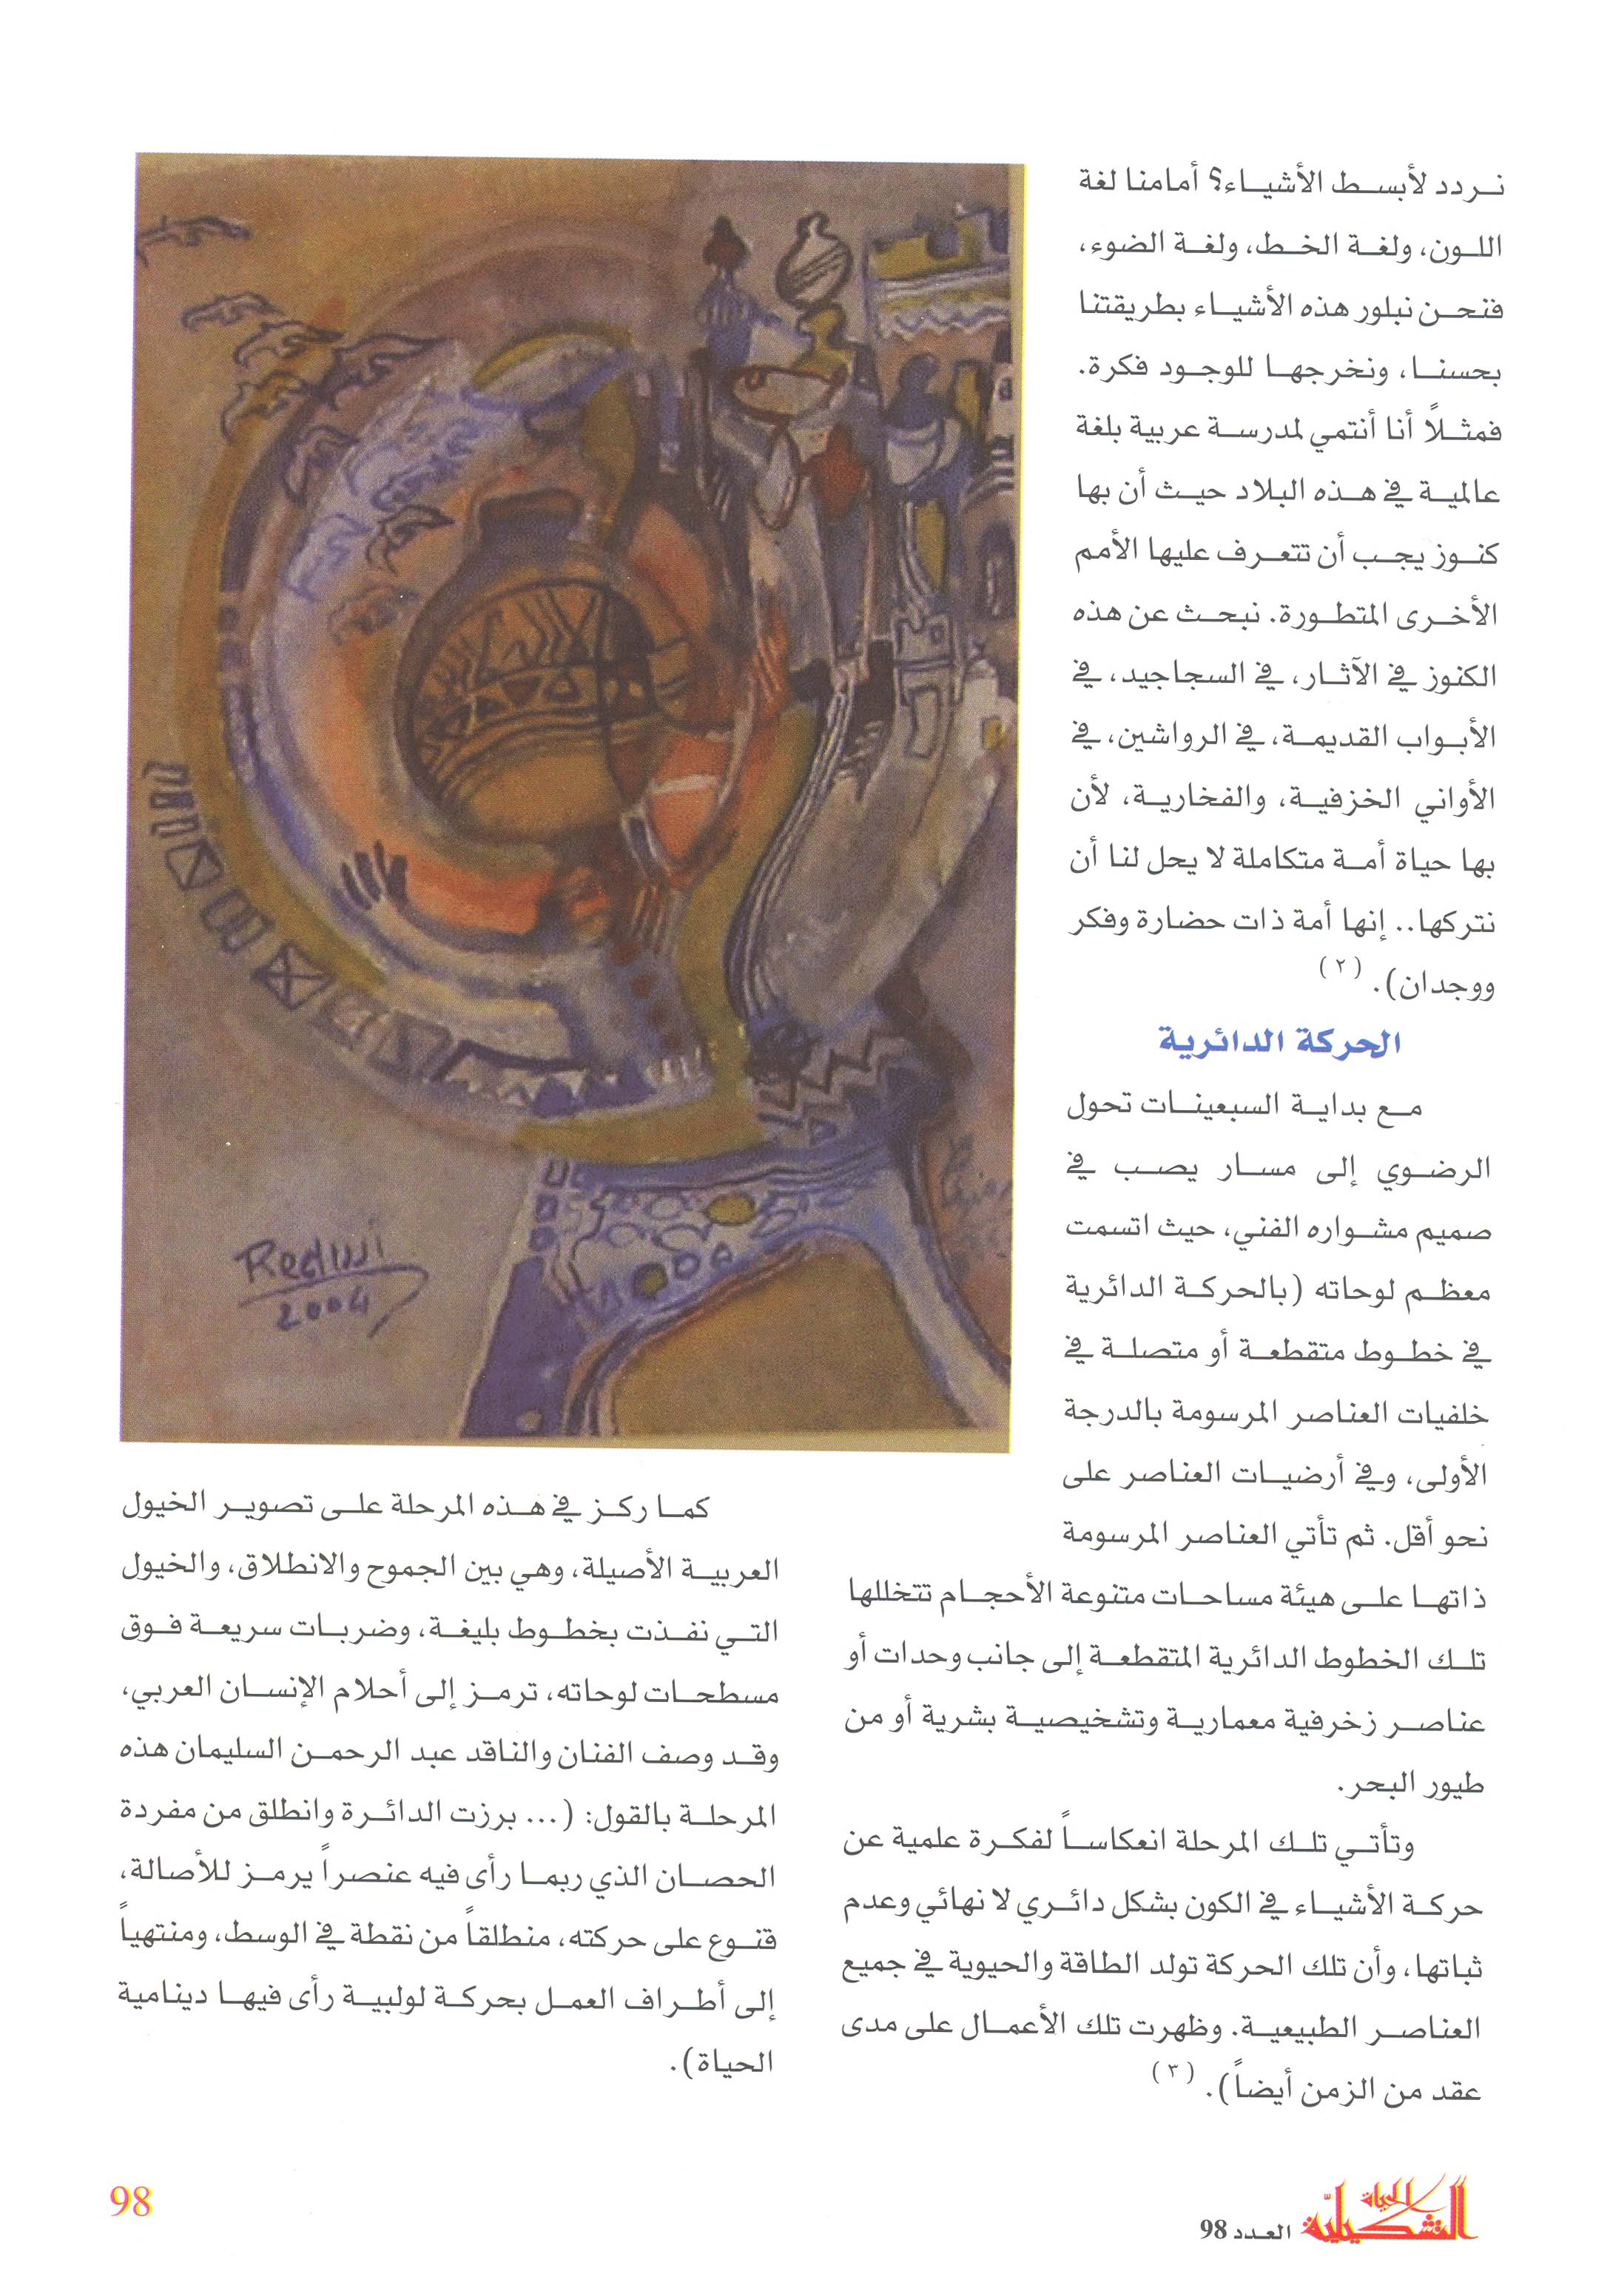 نردد لأبسط الأشياء؟ أمامنا لغة
اللون، ولغة الخط، ولغة الضوء،
فنحن نبلور هذه الأشياء بطريقتنا
بحسنا، ونخرجها للوجود فكرة.
فمثلاً أنا أنتمي لمدرسة عربية بلغة
عالمية في هذه البلاد حيث أن بها
كنوز يجب أن تتعرف عليها الأمم
الأخرى المتطورة. نبحث عن هذه
الكنوز في الآثار، في السجاجيد، في
الأبواب القديمة، في الرواشين، في
الأواني الخزفية، والفخارية، لأن
بها حياة أمة متكاملة لا يحل لنا أن
نتركها.. إنها أمة ذات حضارة وفكر
ووجدان). (٢)
الحركة الدائرية
مع بداية السبعينات تحول
الرضوي إلى مسار يصب في
صميم مشواره الفني، حيث اتسمت
معظم لوحاته (بالحركة الدائرية
في خطوط متقطعة أو متصلة في
خلفيات العناصر المرسومة بالدرجة
الأولى، وفي أرضيات العناصر على
نحو أقل. ثم تأتي العناصر المرسومة
ذاتها على هيئة مساحات متنوعة الأحجام تتخللها
تلك الخطوط الدائرية المتقطعة إلى جانب وحدات أو
عناصر زخرفية معمارية وتشخيصية بشرية أو من
طيور البحر.
وتأتي تلك المرحلة انعكاساً لفكرة علمية عن
حركة الأشياء في الكون بشكل دائري لا نهائي وعدم
ثباتها، وأن تلك الحركة تولد الطاقة والحيوية في جميع
العناصر الطبيعية. وظهرت تلك الأعمال على مدى
عقد من الزمن أيضاً). (٣)
كما ركز في هذه المرحلة على تصوير الخيول
العربية الأصيلة، وهي بين الجموح والانطلاق، والخيول
التي نفذت بخطوط بليغة، وضربات سريعة فوق
مسطحات لوحاته، ترمز إلى أحلام الإنسان العربي،
وقد وصف الفنان والناقد عبد الرحمن السليمان هذه
المرحلة بالقول: (... برزت الدائرة وانطلق من مفردة
الحصان الذي ربما رأى فيه عنصراً يرمز للأصالة،
قنوع على حركته، منطلقاً من نقطة في الوسط، ومنتهياً
إلى أطراف العمل بحركة لولبية رأى فيها دينامية
الحياة).
2004
الحياة
التشكيلية
العدد 98
98